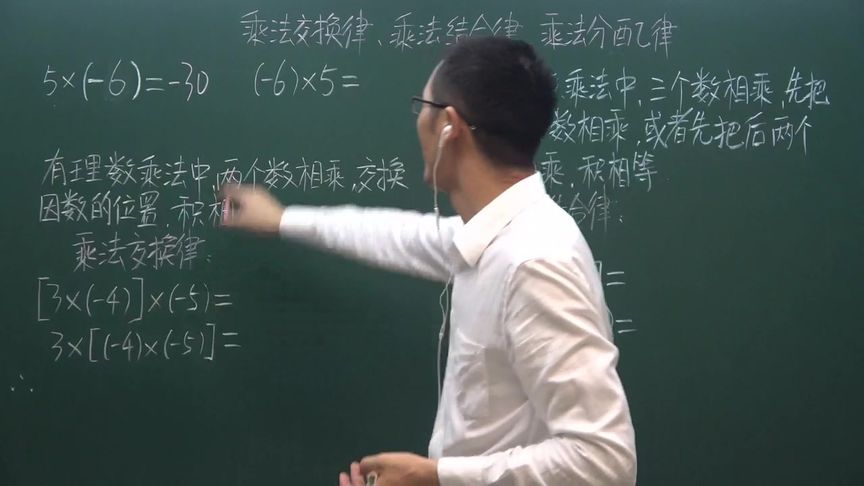 乘法交换律、乘法结合律 乘法分配律
5×(-6)=-30 (-6)×5=
有理数乘法中,两个数相乘,交换
因数的位置,积相
乘法交换律:
[3×(-4)]×(-5)=
3×[(-4)×(-5)]=
∴
乘法中,三个数相乘,先把
数相乘,或者先把后两个
乘,积相等
合律:
]=
)=